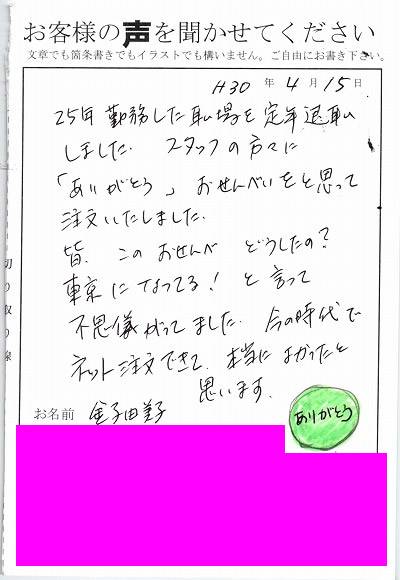 お客様の声を聞かせてください
文章でも箇条書きでもイラストでも構いません。ご自由にお書き下さい。
H30 年 4 月 15 日
25年勤務した職場を定年退職
しました. スタッフの方々に
「ありがとう」おせんべいをと思って
注文いたしました.
皆、このおせんべ どうしたの?
東京になってる! と言って
不思儀がってました. 今の時代で
ネット注文できて、本当によかったと
思います.
切り取り線
お名前 金子由美子
ありがとう